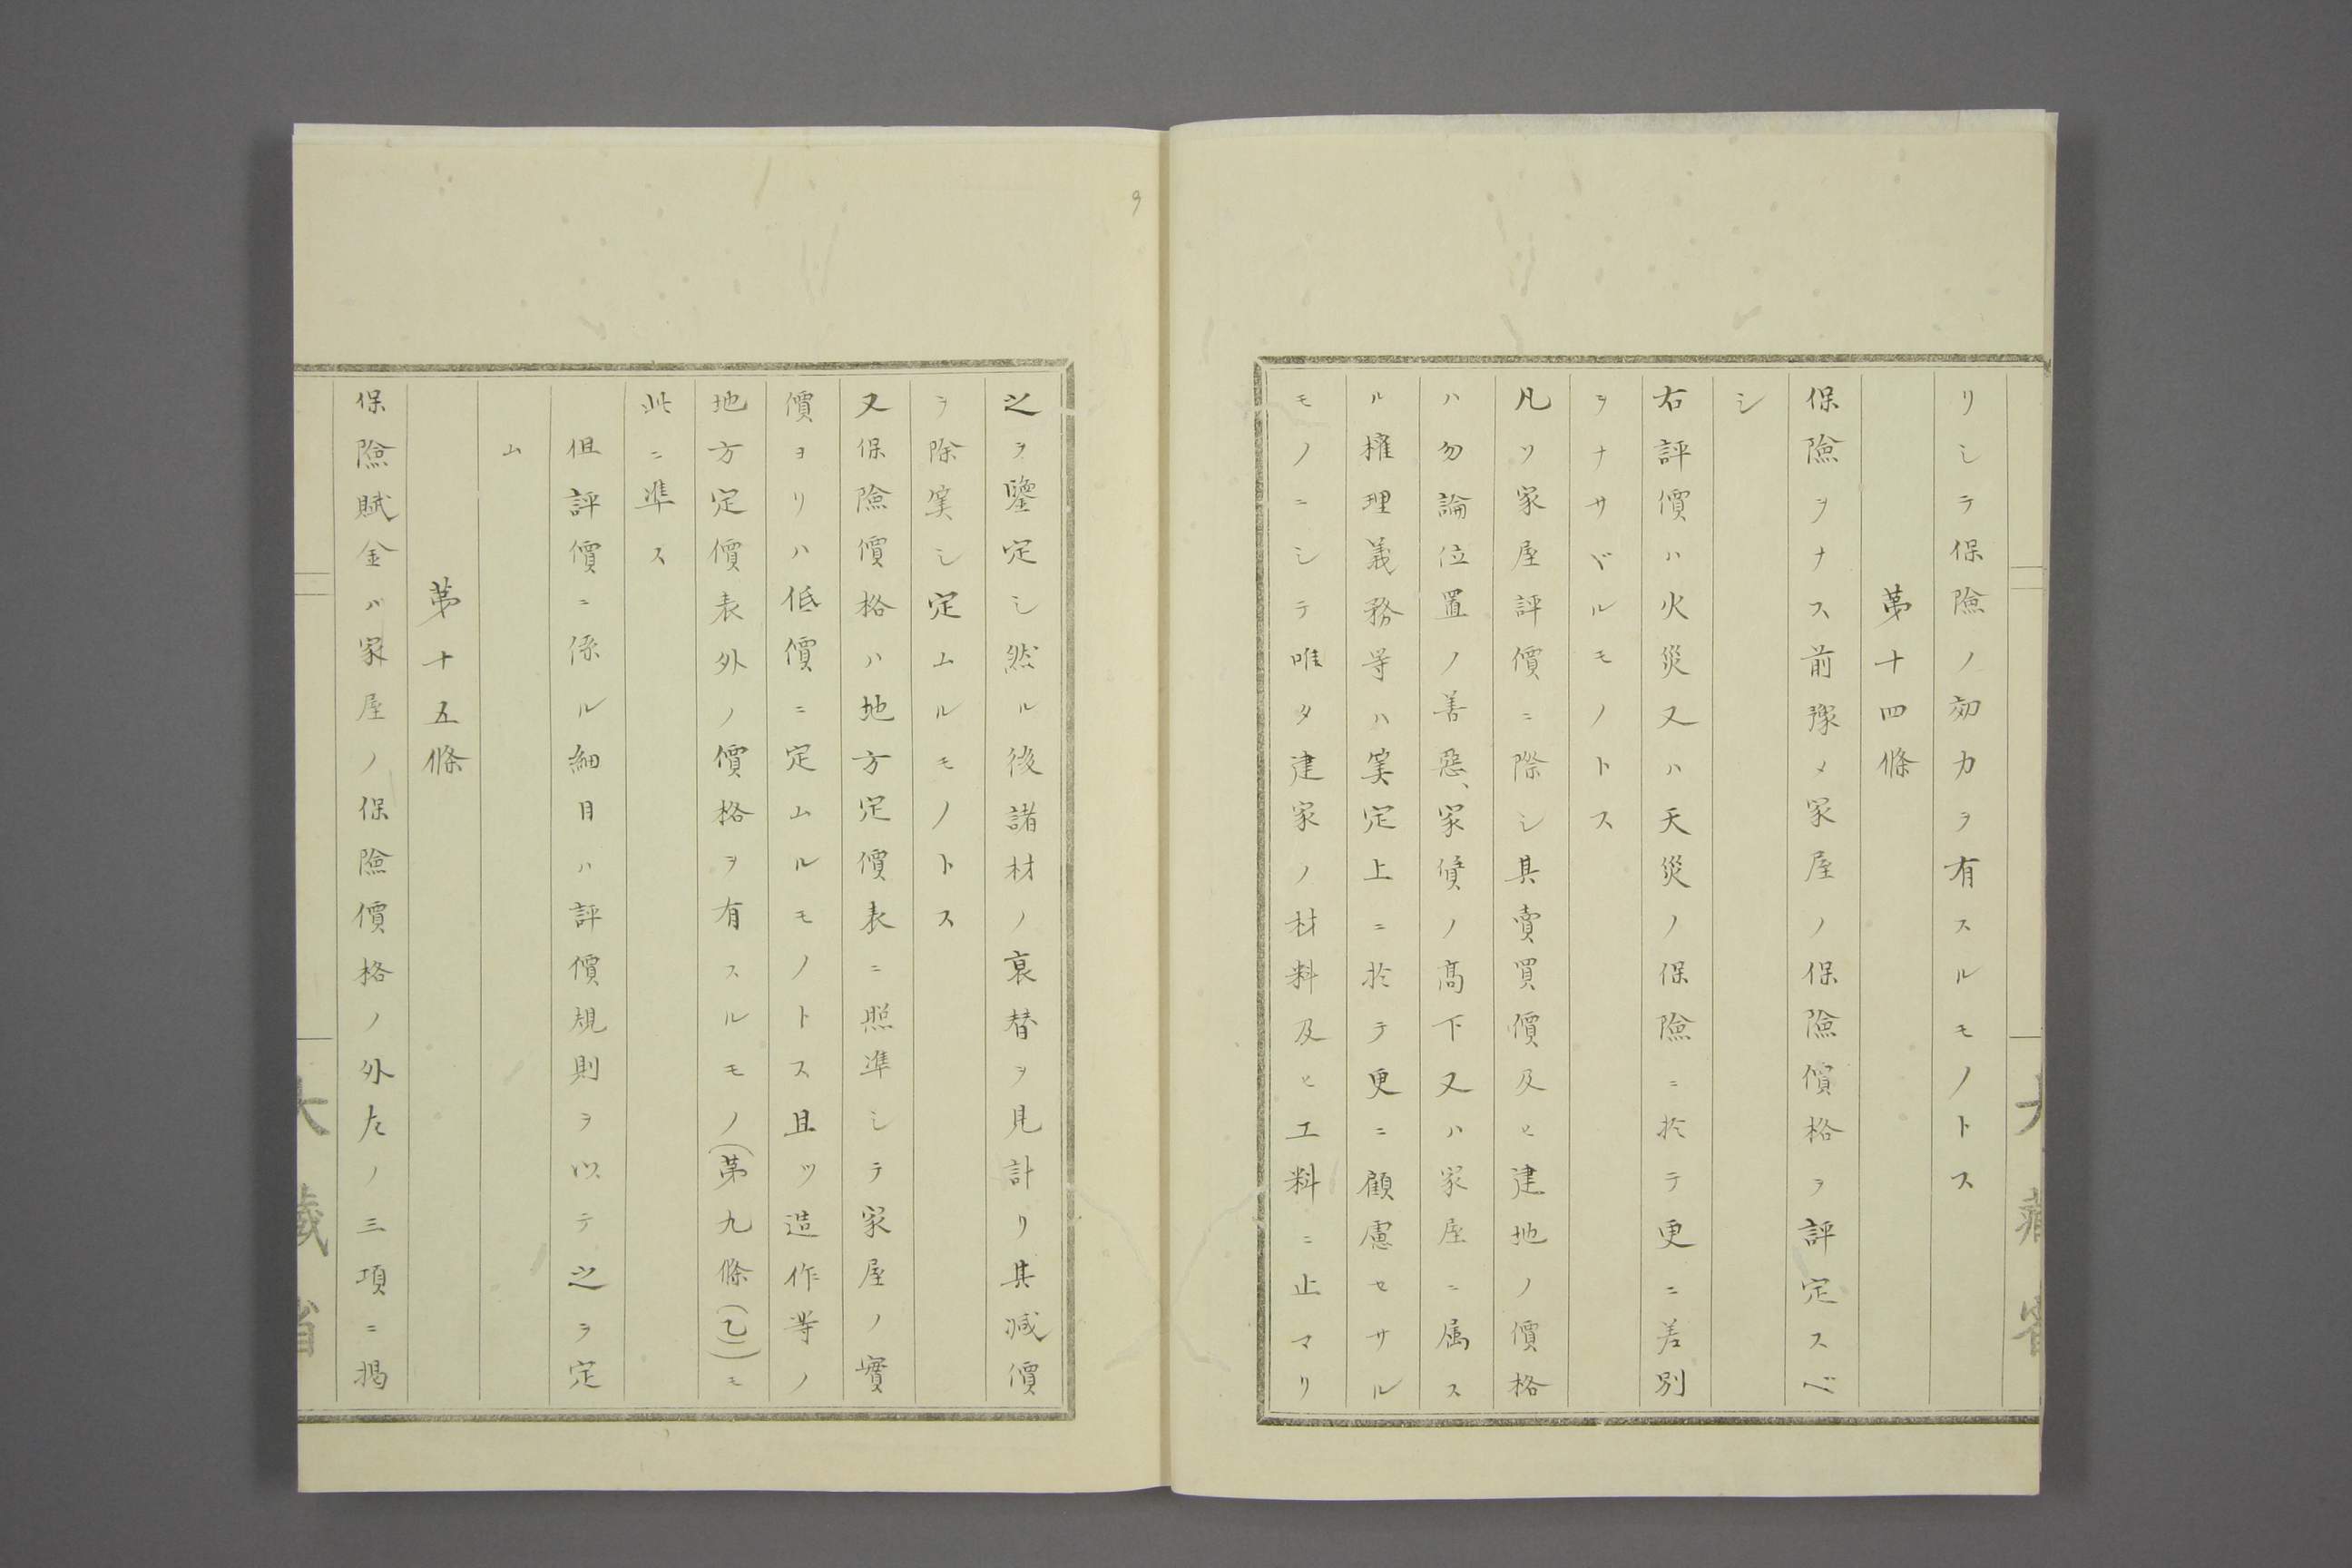 リシテ保險ノ効力ヲ有スルモノトス
第十四條
保險ヲナス前豫メ家屋ノ保險價格ヲ評定スベ
シ
右評價ハ火災又ハ天災ノ保險ニ於テ更ニ差別
ヲナサヾルモノトス
凡ソ家屋評價ニ際シ其賣買價及ヒ建地ノ價格
ハ勿論位置ノ善惡、家賃ノ髙下又ハ家屋ニ属ス
ル權理義務等ハ筭定上ニ於テ更ニ顧慮セサル
モノニシテ唯タ建家ノ材料及ヒ工料ニ止マリ
之ヲ鑒定シ然ル後諸材ノ衰替ヲ見計リ其減價
ヲ除筭シ定ムルモノトス
又保險價格ハ地方定價表ニ照準シテ家屋ノ實
價ヨリハ低價ニ定ムルモノトス且ツ造作等ノ
地方定價表外ノ價格ヲ有スルモノ(第九條(乙))モ
此ニ準ス
但評價ニ係ル細目ハ評價規則ヲ以テ之ヲ定
ム
第十五條
保險賦金ハ家屋ノ保險價格ノ外左ノ三項ニ揭
大藏省
9